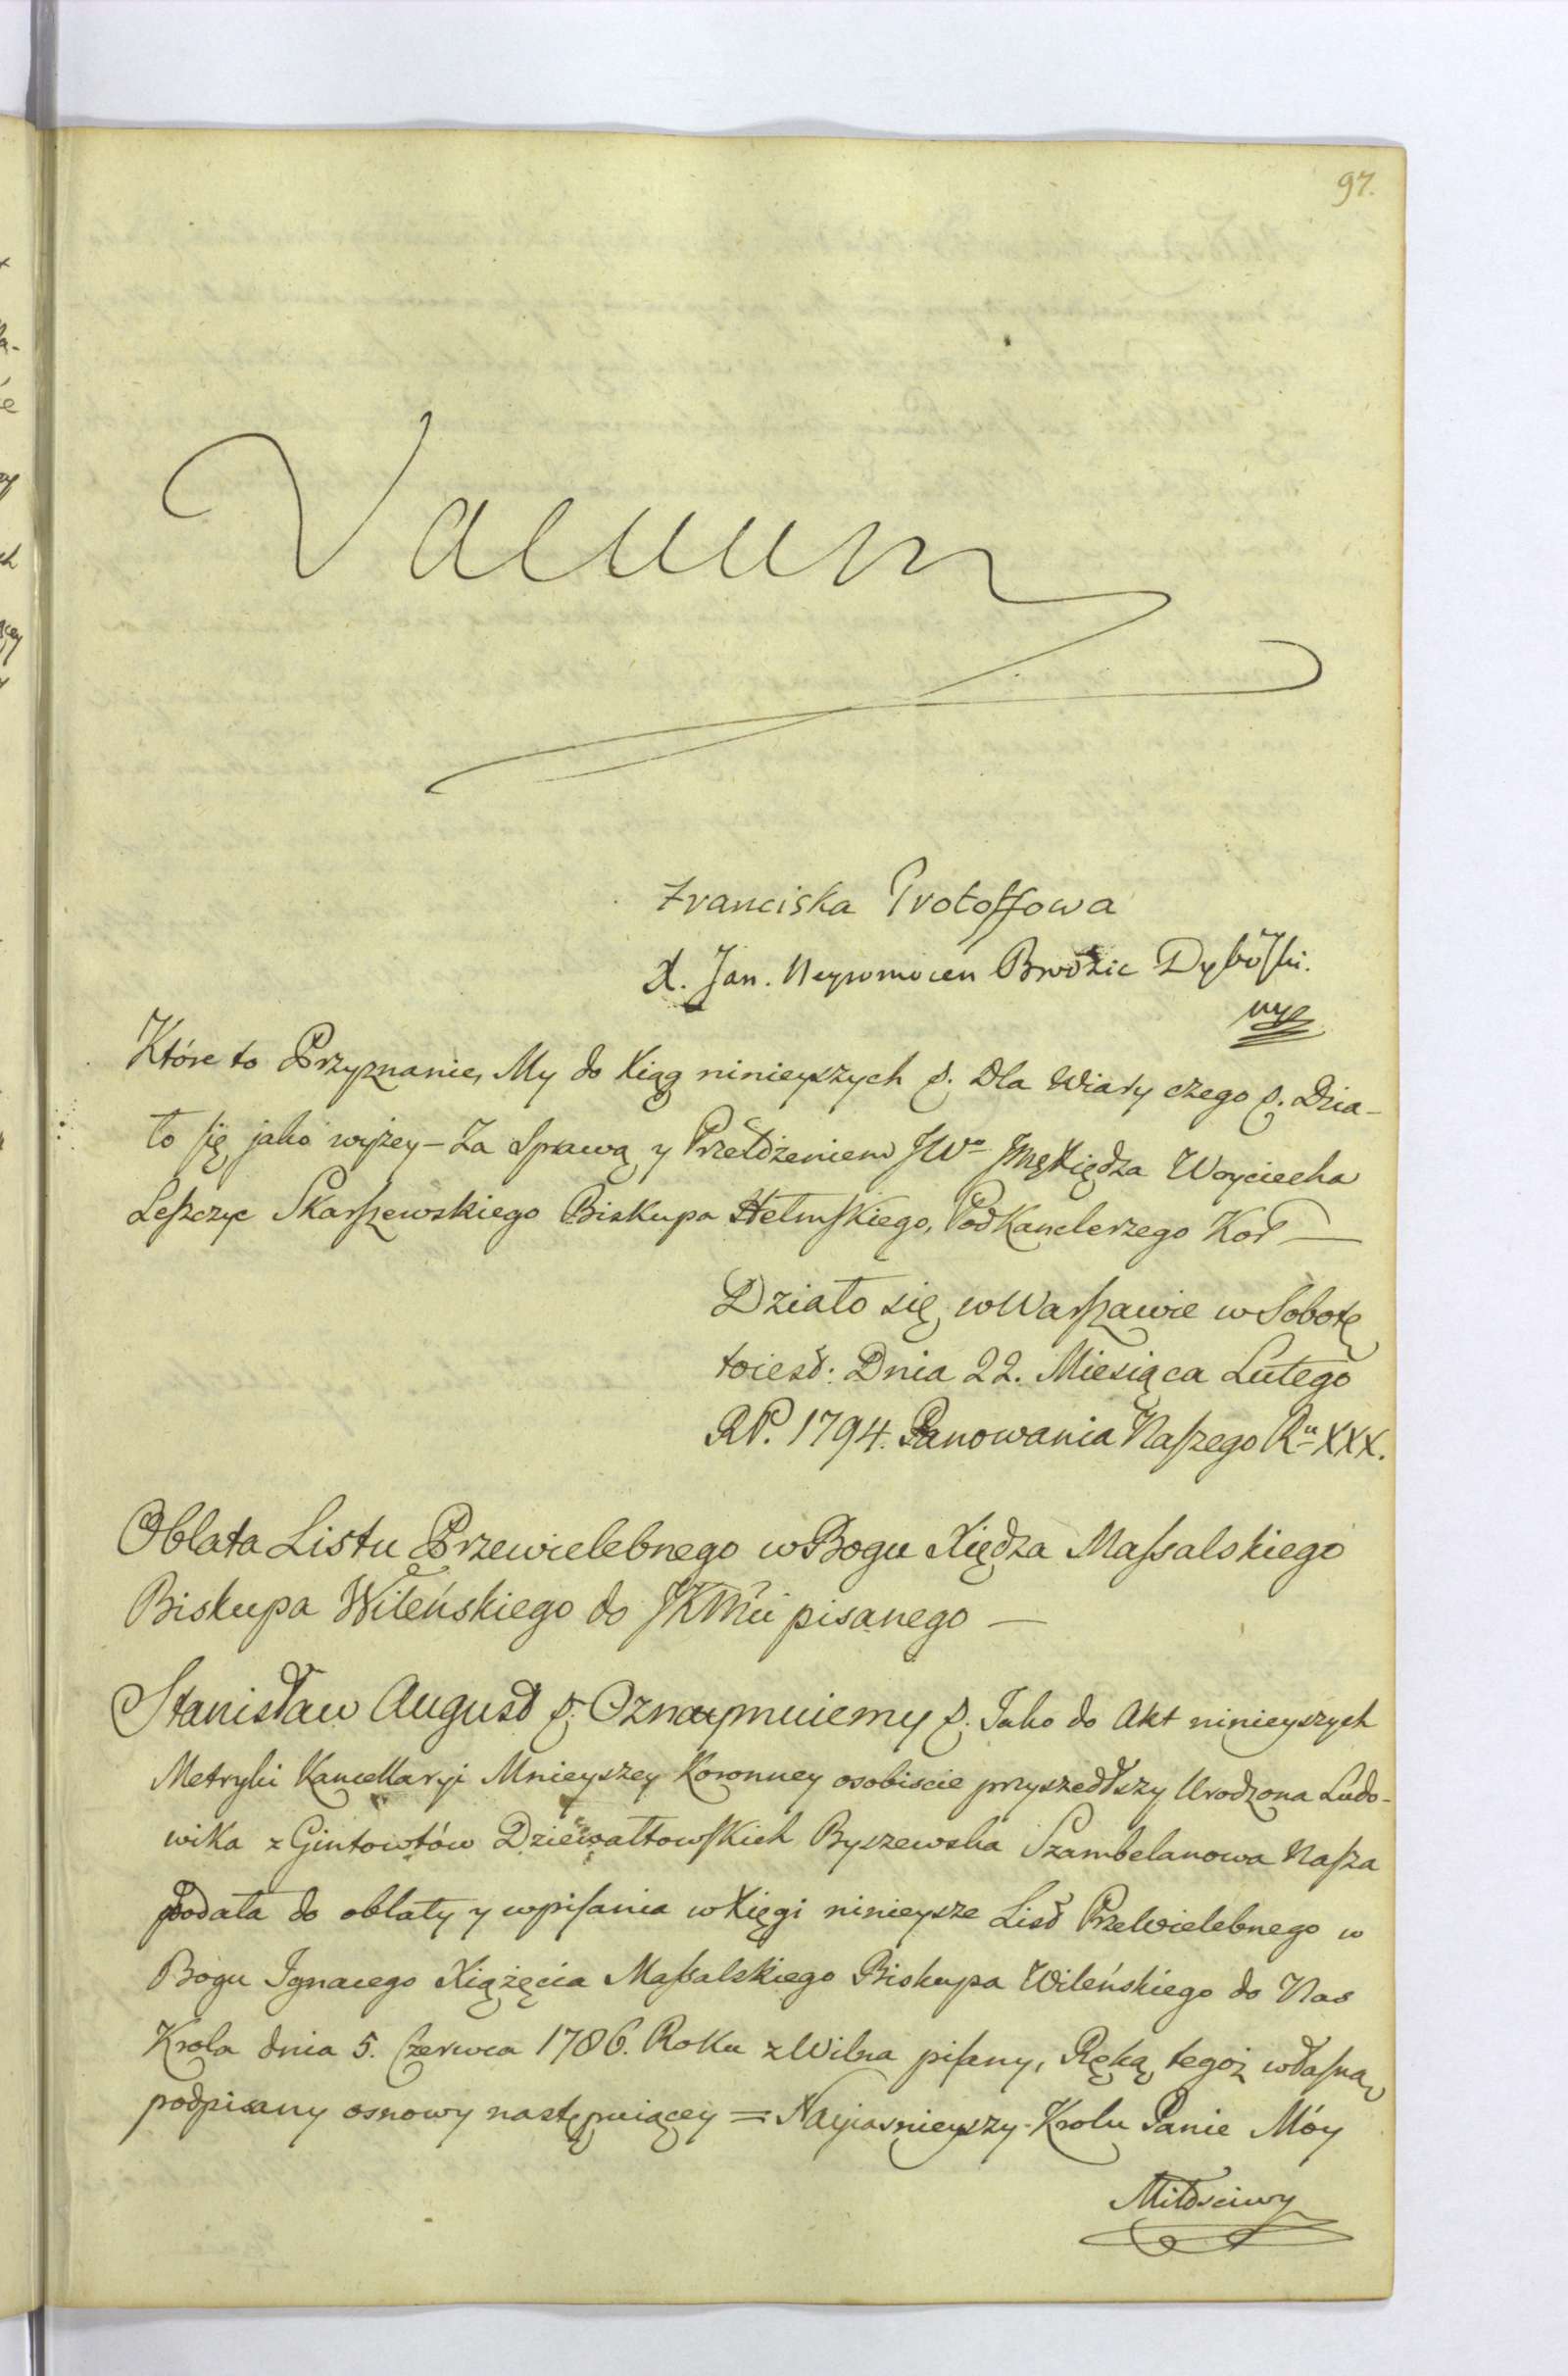 97.
Vacuum
Franciska Protoffowa
X. Jan. Nepomucen Brodzic Dyboſki.
mp
Które to Przyznanie, My do Xiąg ninieyszych &. Dla Wiary czego &. Dzia-
ło ſię jako wyżey – Za Sprawą y Przełożeniem JWo Jmę Xiędza Woyciecha
Leſzczyc Skarſzewskiego Biskupa Hełmſkiego, PodKanclerzego Kor —
Działo się w Warſzawie w Sobotę
toiest: Dnia 22. Miesiąca Lutego
RP. 1794. Panowania Naſzego Ru XXX.
Oblata Listu Przewielebnego w Bogu Xiędza Maſsalskiego
Biskupa Wileńskiego do JKMci pisanego —
Stanisław August &. Oznaymuiemy &. Jako do Akt ninieyszych
Metryki Kancellaryi Mnieyszey Koronney osobiscie przyszedłszy Urodzona Ludo-
wika z Gintowtów Dziewałtowſkich Byszewska Szambelanowa Naſza
podała do oblaty y wpiſania w Xięgi ninieysze List Przewielebnego w
Bogu Ignacego Xiążęcia Maſsalskiego Biskupa Wileńskiego do Nas
Krola dnia 5. Czerwca 1786. Roku z Wilna piſany, Ręką tegoż właſną
podpisany osnowy następuiącey = Nayiasnieyszy Krolu Panie Móy
Miłosciwy